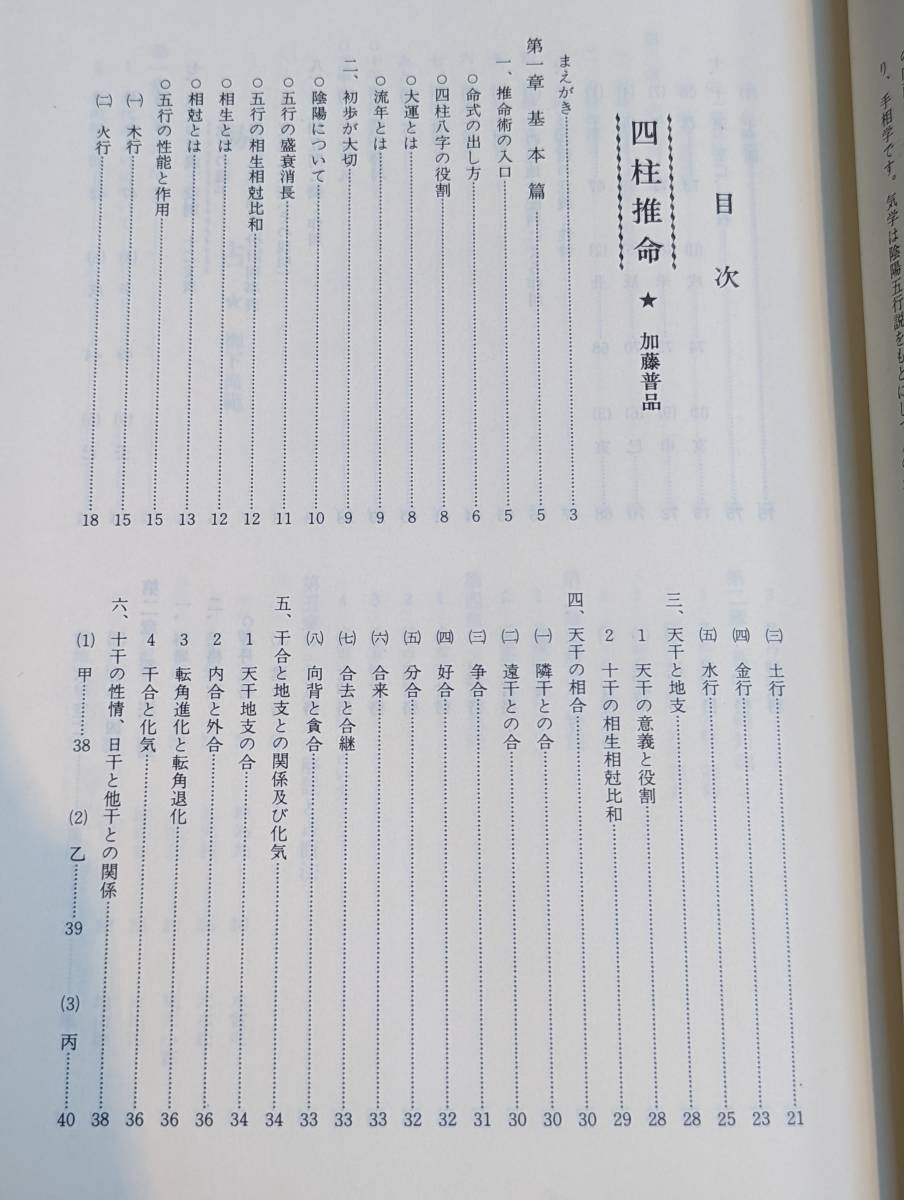 り、手相学です。気学は陰陽五行説をもとにして
目次
四柱推命 ★ 加藤普品
まえがき……3
第一章 基本篇……5
一、推命術の入口……5
○命式の出し方……6
○四柱八字の役割……8
○大運とは……8
○流年とは……9
二、初歩が大切……9
○陰陽について……10
○五行の盛衰消長……11
○五行の相生相尅比和……12
○相生とは……12
○相尅とは……13
○五行の性能と作用……15
㈠ 木行……15
㈡ 火行……18
㈢ 土行……21
㈣ 金行……23
㈤ 水行……25
三、天干と地支……28
1 天干の意義と役割……28
2 十干の相生相尅比和……29
四、天干の相合……30
㈠ 隣干との合……30
㈡ 遠干との合……30
㈢ 争合……31
㈣ 好合……32
㈤ 分合……32
㈥ 合来……33
㈦ 合去と合継……33
㈧ 向背と貪合……33
五、干合と地支との関係及び化気……34
1 天干地支の合……34
2 内合と外合……36
3 転角進化と転角退化……36
4 干合と化気……36
六、十干の性情、日干と他干との関係……38
⑴ 甲……38 ⑵ 乙……39 ⑶ 丙……40